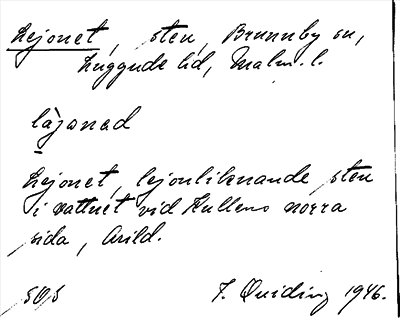 Lejonet, sten, Brunnby sn,
Luggude hd, Malm. l.
làjaned
Lejonet, lejonliknande sten
i vattnet vid Kullens norra
sida, Arild.
50,5
F. Quiding 1946.